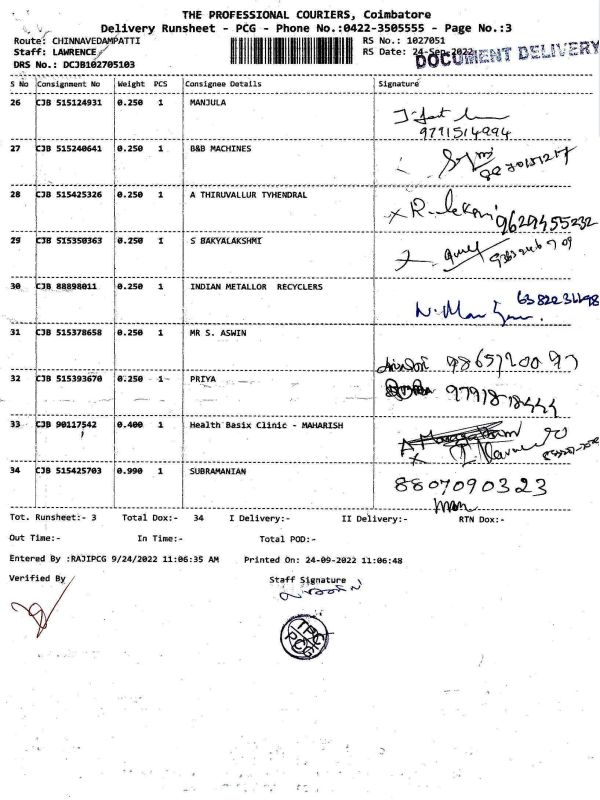 THE PROFESSIONAL COURIERS, Coimbatore
Delivery Runsheet - PCG - Phone No.:0422-3505555 - Page No.:3
Route: CHINNAVEDAMPATTI RS No.: 1027051
Staff: LAWRENCE RS Date: 24-Sep-2022
DOCUMENT DELIVERY
DRS No.: DCJB102705103
S No Consignment No Weight PCS Consignee Details Signature
26 CJB 515124931 0.250 1 MANJULA
9791514994
27 CJB 515240641 0.250 1 B&B MACHINES
28 CJB 515425326 0.250 1 A THIRUVALLUR TYHENDRAL
9629455232
29 CJB 515350363 0.250 1 S BAKYALAKSHMI
30 CJB 88898011 0.250 1 INDIAN METALLOR RECYCLERS
31 CJB 515378658 0.250 1 MR S. ASWIN
32 CJB 515393670 0.250 1 PRIYA
33 CJB 90117542 0.400 1 Health Basix Clinic - MAHARISH
34 CJB 515425703 0.990 1 SUBRAMANIAN
8807090323
Tot. Runsheet:- 3 Total Dox:- 34 I Delivery:- II Delivery:- RTN Dox:-
Out Time:- In Time:- Total POD:-
Entered By :RAJIPCG 9/24/2022 11:06:35 AM Printed On: 24-09-2022 11:06:48
Verified By Staff Signature
TPC
PCG